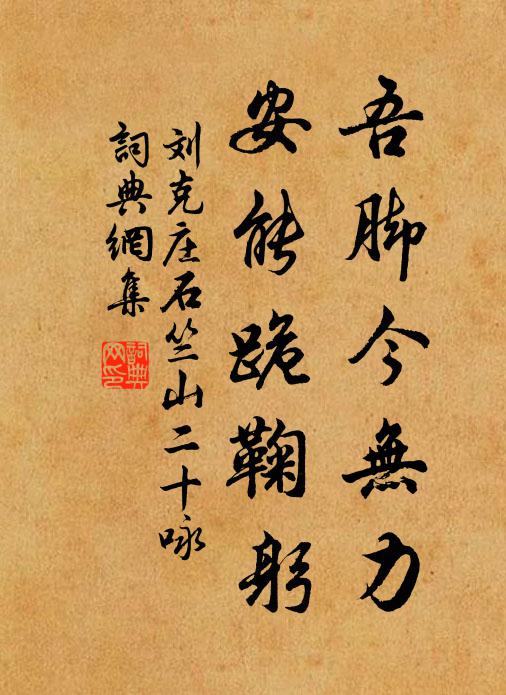 吾脚今無力
安能跪鞠躬
刘克庄石竺山二十咏
詞典網集
詞典
网印